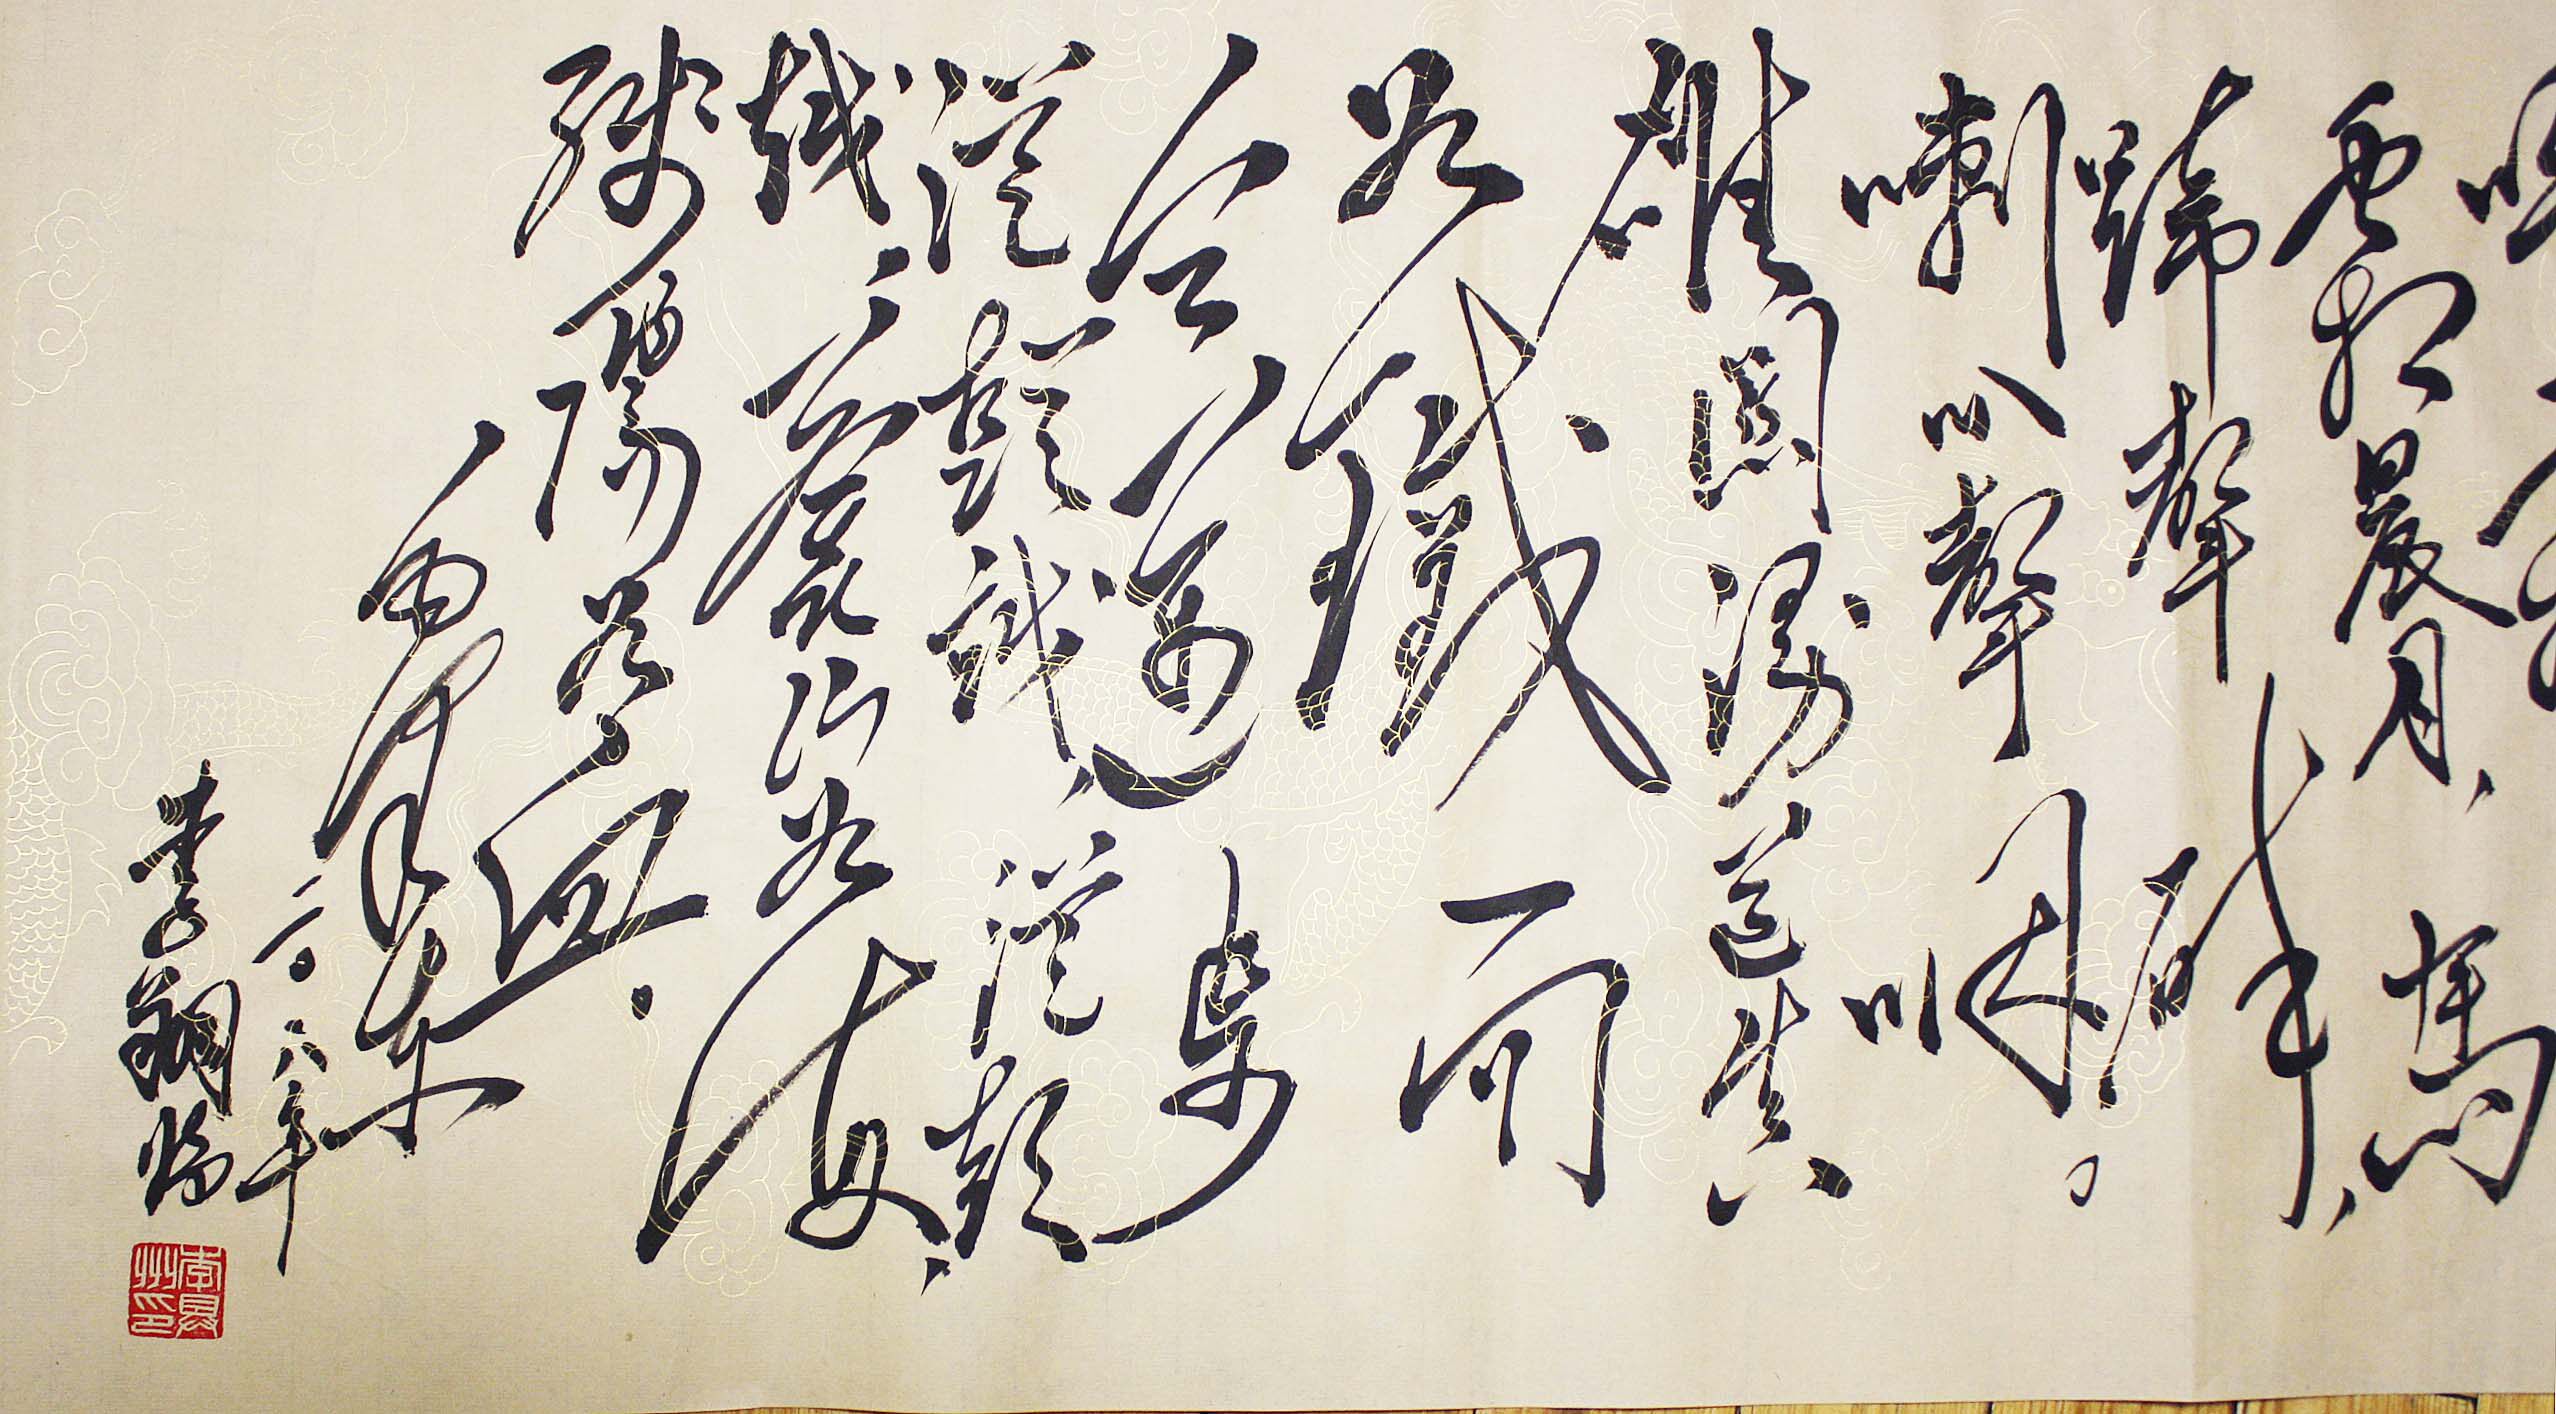 霜晨月、馬
蹄聲碎、
喇叭聲咽。
雄關漫道真
如鐵、而
今邁步
從頭越、從頭
越、蒼山如海、
殘陽如血。
毛澤東
二〇〇八年